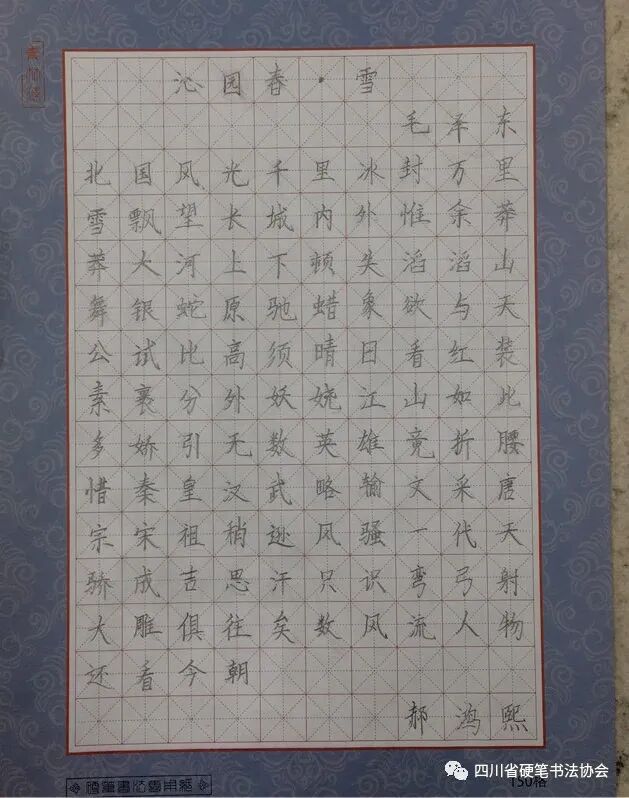 沁园春·雪
毛泽东
北国风光千里冰封万里
雪飘望长城内外惟余莽
莽大河上下顿失滔滔山
舞银蛇原驰蜡象欲与天
公试比高须晴日看红装
素裹分外妖娆江山如此
多娇引无数英雄竟折腰
惜秦皇汉武略输文采唐
宗宋祖稍逊风骚一代天
骄成吉思汗只识弯弓射
大雕俱往矣数风流人物
还看今朝
郝鸿熙
硬笔书法专用纸
150格
四川省硬笔书法协会